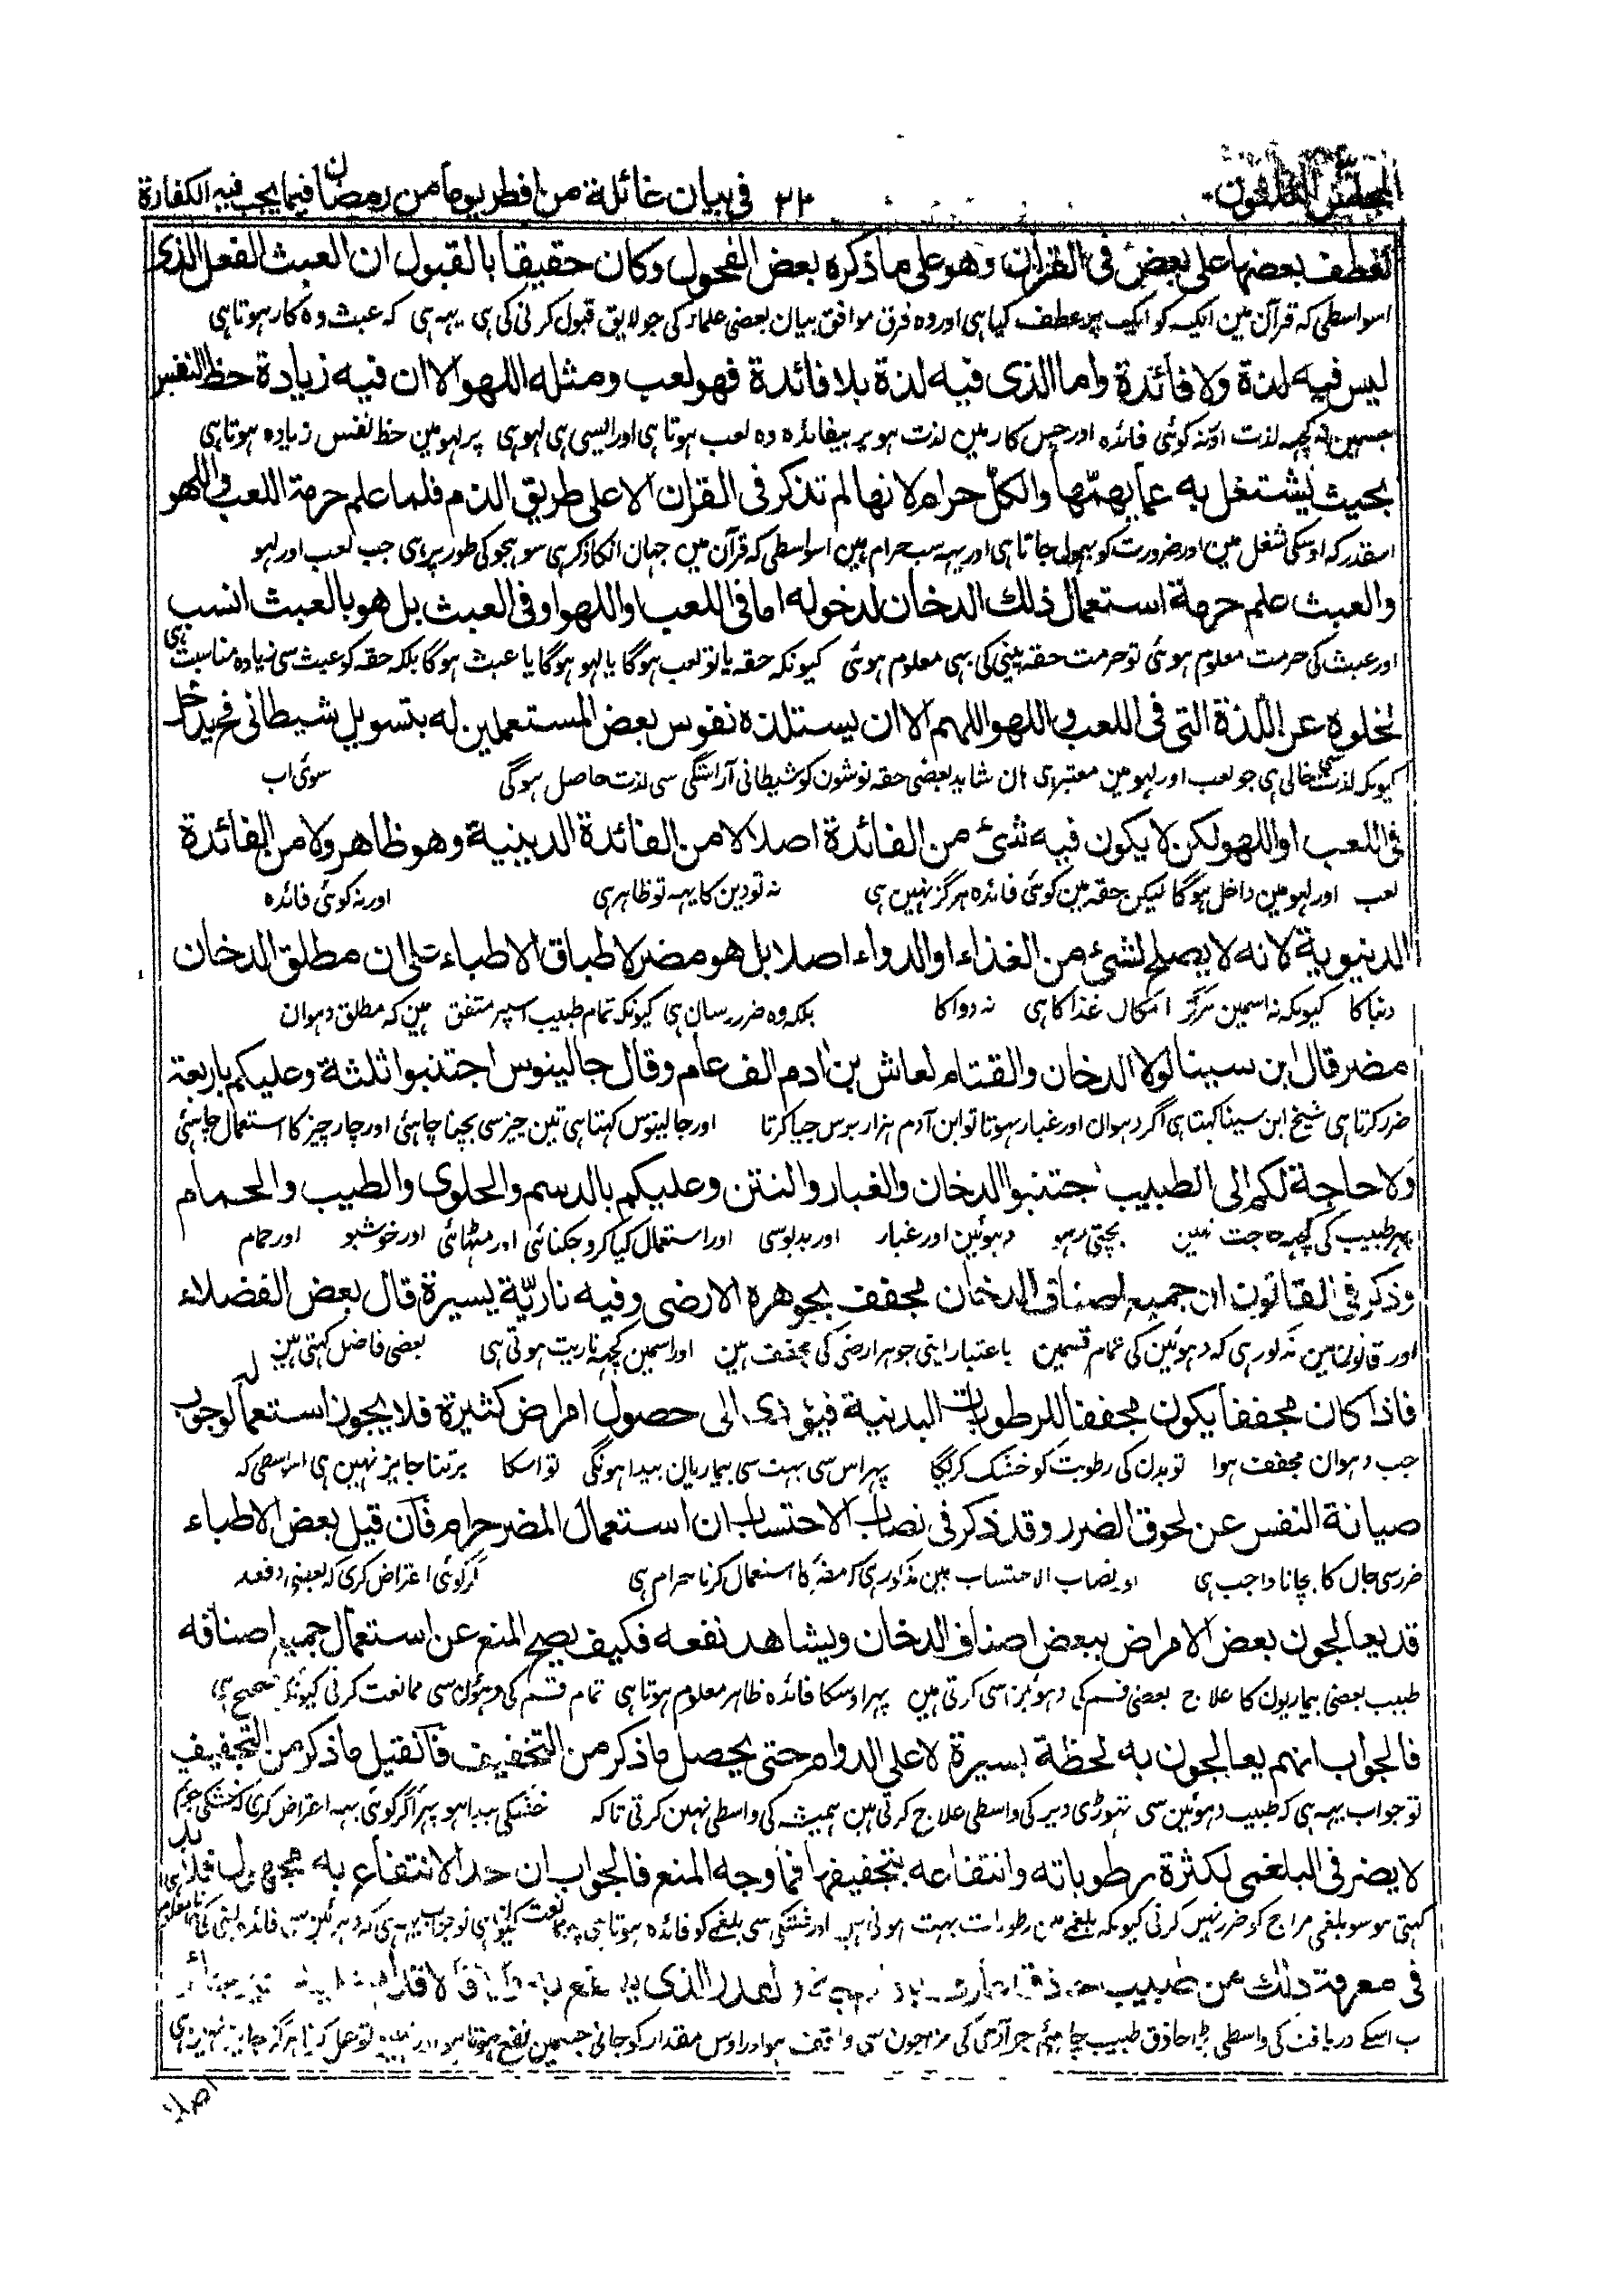 المجلس الثلثون
٢٢٠ في بيان غائلة من افطر يوما من رمضان فيما يجب فيه الكفارة
لعطف بعضها على بعض في القران وهو على ما ذكره بعض الفحول وكان حقيقا بالقبول ان العبث الفعل الذى
اسواسطی که قرآن مین ایک کو ایک پر عطف کیا ہی اور وہ فرق موافق بیان بعضی علماء کی جو لایق قبول کرنی کی ہی یہہ ہی که عبث وہ کار ہوتا ہی
ليس فيه لذة ولا فائدة واما الذى فيه لذة بلا فائدة فهو لعب ومثله اللهو الا ان فيه زيادة حظ النفس
جسمین نہ کچہہ لذت اور نہ کوئی فائدہ اور جس کار مین لذت ہو پر بیفائدہ وہ لعب ہوتا ہی اور ایسی ہی لہو ہی پر لہو مین حظ نفس زیادہ ہوتا ہی
بحيث يشتغل به عما يهمها والكل حرام لانها لم تذكر فى القران الا على طريق الذم فلما علم حرمة اللعب واللهو
اسقدر که اوسکی شغل مین اور ضرورت کو بہولی جاتا ہی اور یہہ سب حرام ہین اسواسطی که قرآن مین جہان انکا ذکر ہی سو ہجو کی طور پر ہی جب لعب اور لہو
والعبث علم حرمة استعمال ذلك الدخان لدخوله اما فى اللعب او اللهو او فى العبث بل هو بالعبث انسب
اور عبث کی حرمت معلوم ہوئی تو حرمت حقه پینی کی بہی معلوم ہوئی کیونکہ حقه یا تو لعب ہوگا یا لہو ہوگا یا عبث ہوگا بلکه حقه کو عبث سی زیادہ مناسبت ہی
لخلوه عن اللذة التى فى اللعب واللهو اللهم الا ان يستلذه نفوس بعض المستعملين له بتسويل شيطانى فح يدخل
کیونکہ لذت سی خالی ہی جو لعب اور لہو مین معتبر ہی ان شاید بعضی حقه نوشون کو شیطانی آراستگی سی لذت حاصل ہوگی سوئی اب
فى اللعب او اللهو لكن لا يكون فيه شئ من الفائدة اصلا لا من الفائدة الدينية وهو ظاهر ولا من الفائدة
لعب اور لہو مین داخل ہوگا لیکن حقه مین کوئی فائدہ ہرگز نہین ہی نہ تو دین کا یہہ تو ظاہر ہی اور نہ کوئی فائدہ
الدنيوية لانه لا يصلح لشئ من الغذاء او الدواء اصلا بل هو مضر لاطباق الاطباء على ان مطلق الدخان
دنیا کا کیونکہ نہ اسمین ہرگز غذا کا ہی نہ دوا کا بلکه وہ ضرر رسان ہی کیونکہ تمام طبیب اسپر متفق ہین که مطلق دہوان
مضر قال ابن سينا لولا الدخان والقتام لعاش بن ادم الف عام وقال جالينوس اجتنبوا ثلثة وعليكم باربعة
ضرر کرتا ہی شیخ ابن سینا کہتا ہی اگر دہوان اور غبار نہوتا تو ابن آدم ہزار برس جیا کرتا اور جالینوس کہتا ہی تین چیز سی بچنا چاہئی اور چار چیز کا استعمال چاہئی
ولا حاجة لكم الى الطبيب اجتنبوا الدخان والغبار والنتن وعليكم بالدسم والحلوى والطيب والحمام
پہر طبیب کی کچہہ حاجت نہین بچتی رہو دہوئین اور غبار اور بدبو سی اور استعمال کیا کرو چکنائی اور مٹہائی اور خوشبو اور حمام
وذكر فى القانون ان جميع اصناف الدخان مجفف بجوهره الارضى وفيه نارية يسيرة قال بعض الفضلاء
اور قانون مین مذکور ہی که دہوئین کی تمام قسمین باعتبار اپنی جوہر ارضی کی مجفف ہین اور اسمین کچہہ ناریت ہوتی ہی بعضی فاضل کہتی ہین
فاذا كان مجففا يكون مجففا للرطوبات البدنية فيؤدى الى حصول امراض كثيرة فلا يجوز استعماله لوجوب
جب دہوان مجفف ہوا تو بدن کی رطوبت کو خشک کریگا پہر اس سی بہت سی بیماریان پیدا ہونگی تو اسکا برتنا جایز نہین ہی اسواسطی که
صيانة النفس عن لحوق الضرر وقد ذكر فى نصاب الاحتساب ان استعمال المضر حرام فان قيل بعض الاطباء
ضرر سی جان کا بچانا واجب ہی اور نصاب الاحتساب مین مذکور ہی که مضر کا استعمال کرنا حرام ہی اگر کوئی اعتراض کری که بعضی دفعه
قد يعالجون بعض الامراض ببعض اصناف الدخان ويشاهد نفعه فكيف يصح المنع عن استعمال جميع اصنافه
طبیب بعضی بیماریون کا علاج بعضی قسم کی دہوئین سی کرتی ہین پہر اوسکا فائدہ ظاہر معلوم ہوتا ہی تمام قسم کی دہوئون سی ممانعت کرنی کیونکر صحیح ہی
فالجواب انهم يعالجون به لحظة يسيرة لا على الدوام حتى يحصل ما ذكر من التجفيف فان قيل ما ذكر من التجفيف
تو جواب یہہ ہی که طبیب دہوئین سی تہوڑی دیر کی واسطی علاج کرتی ہین ہمیشه کی واسطی نہین کرتی تاکه خشکی پیدا ہو پہر اگر کوئی یہہ اعتراض کری که خشکی جو تم
لا يضر فى البلغمى لكثرة رطوباته وانتفاعه بتجفيفها فما وجه المنع فالجواب ان حد الانتفاع به مجهول فلا بد
کہتی ہو سو بلغمی مزاج کو ضرر نہین کرتی کیونکہ بلغمی مین رطوبات بہت ہوتی ہین اور خشکی سی بلغمی کو فائدہ ہوتا ہی
فى معرفة ذلك من طبيب حاذق
اسکے دریافت کی واسطی بڑا حاذق طبیب چاہئے جو آدمی کی مزاجون سی واقف ہو اور اوس مقدار کو جانی جسمین نفع ہوتا ہو
اصلا